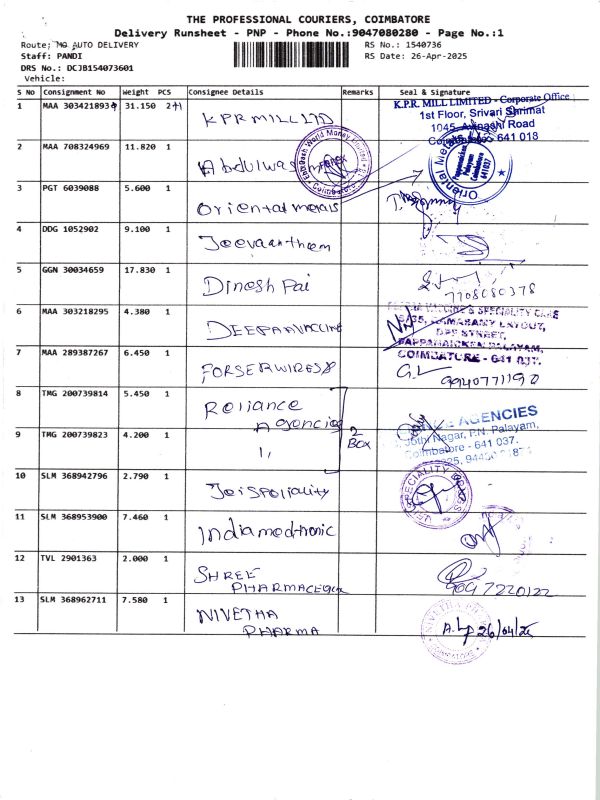 THE PROFESSIONAL COURIERS, COIMBATORE
Delivery Runsheet - PNP - Phone No.:9047080280 - Page No.:1
Route; MG AUTO DELIVERY
RS No.: 1540736
Staff: PANDI
RS Date: 26-Apr-2025
DRS No.: DCJB154073601
Vehicle:
S No Consignment No Weight PCS Consignee Details Remarks Seal & Signature
1 MAA 303421893 31.150 2+1 KPR MILL LTD
K.P.R. MILL LIMITED - Corporate Office
1st Floor, Srivari Shrimat
1045, Avinashi Road
Coimbatore 641 018
2 MAA 708324969 11.820 1 Abdulwas
World Money Limited
Coimbatore
Oriental
Coimbatore
641037
3 PGT 6039088 5.600 1 Oriental
4 DDG 1052902 9.100 1
5 GGN 30034659 17.830 1 Dinesh Pai
7708080378
6 MAA 303218295 4.380 1 DEEPAAVACCINE
VACCINE & SPECIALITY CARE
RAMASAMY LAYOUT,
STREET,
PAPPANAICKEN PALAYAM,
COIMBATORE - 641 037.
7 MAA 289387267 6.450 1 FORSERWIRES
G.L
9940771190
8 TMG 200739814 5.450 1 Reliance
Agencies
2
BOX
AGENCIES
Jothi Nagar, P.N. Palayam,
Coimbatore - 641 037.
9 TMG 200739823 4.200 1 "
10 SLM 368942796 2.790 1
SPECIALITY
11 SLM 368953900 7.460 1 Indiamedtronic
12 TVL 2901363 2.000 1 SHREE
PHARMACEQUR
9047220122
13 SLM 368962711 7.580 1 NIVETHA
PHARMA
NIVETHA
COIMBATORE
26/04/25